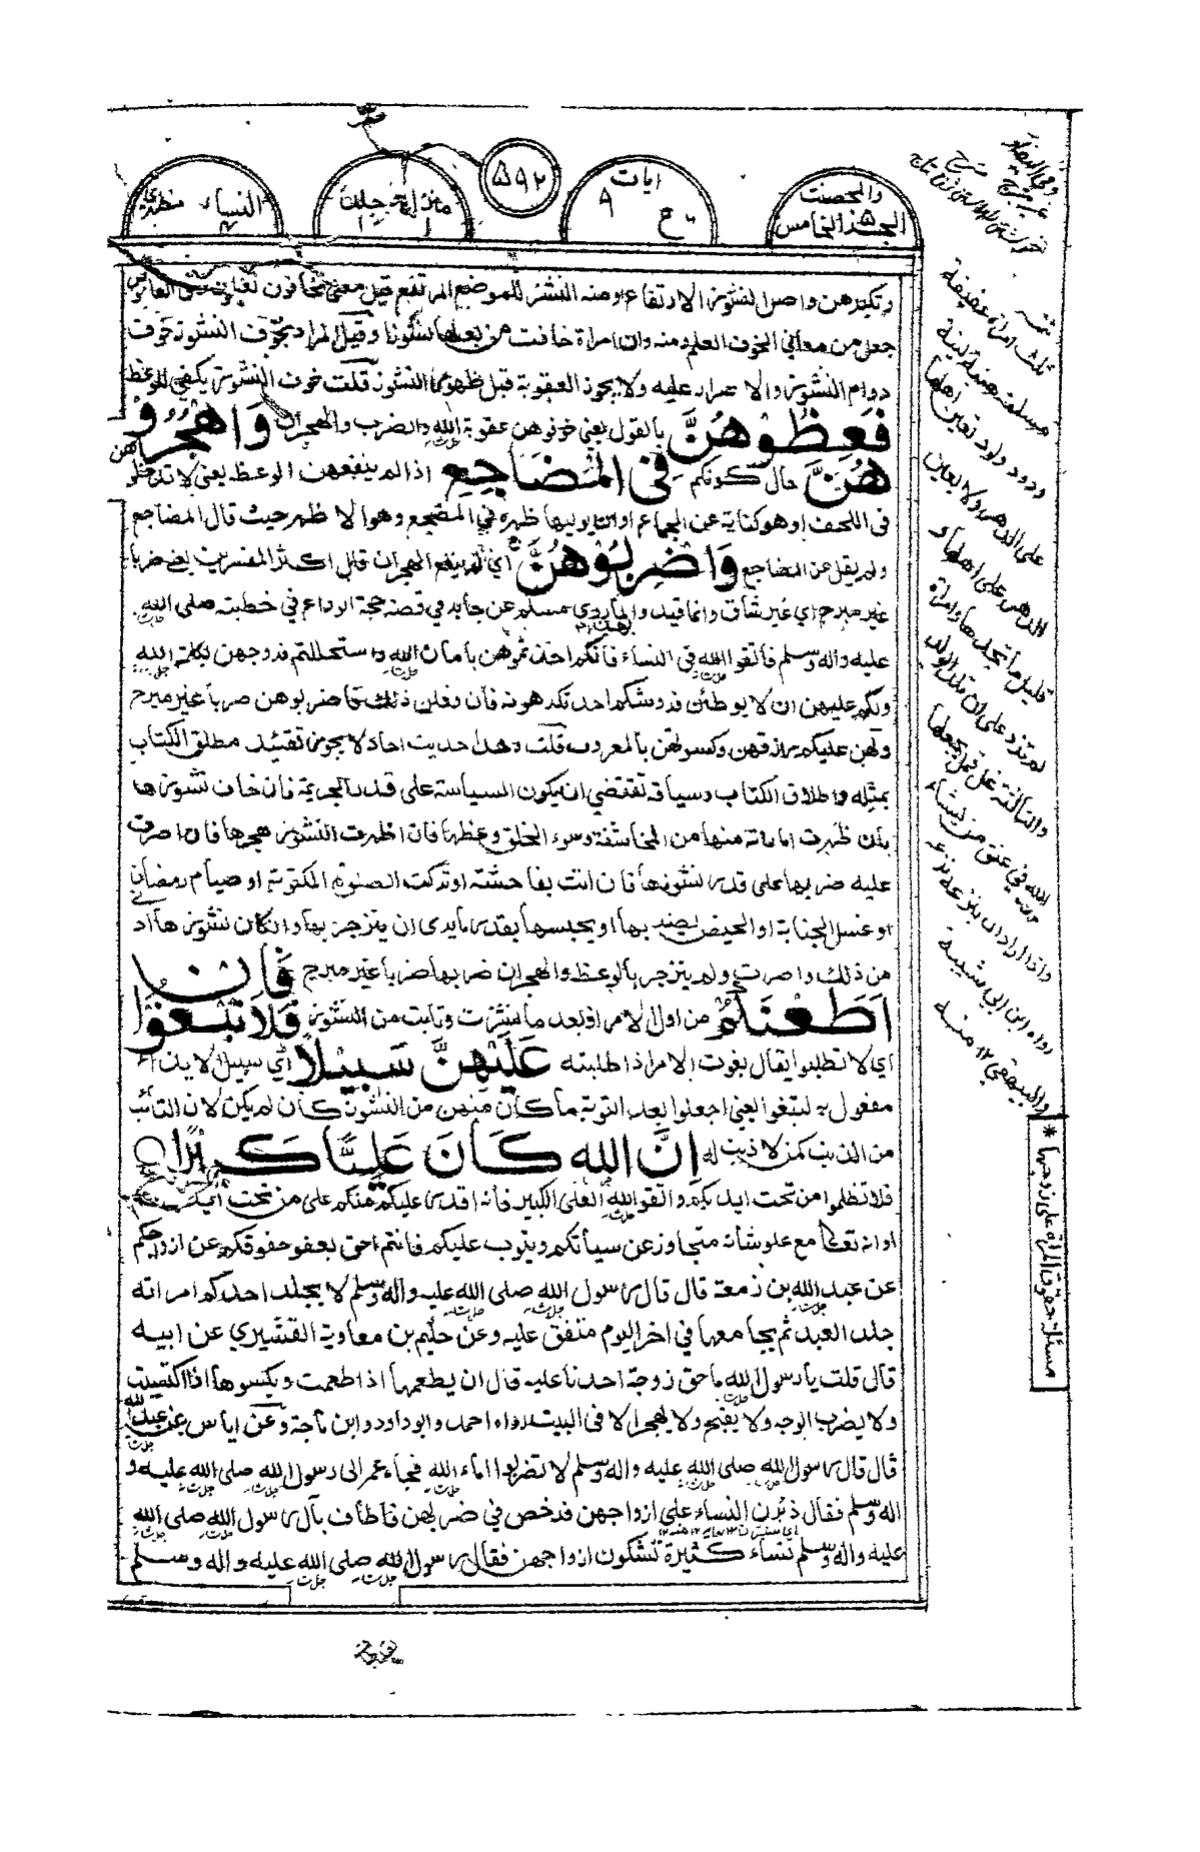 والمحصنت
الجزء الخامس
ايات
٩
ع
٥٩٢
منزل
النساء
٤
مظهري
وتكبرهن واصل النشوز الارتفاع ومنه النشز للموضع المرتفع قيل معنى تخافون تعلمون
جعل من معاني الخوف العلم ومنه وان امراة خافت من بعلها نشوزا وقيل المراد بخوف النشوز خوف
دوام النشوز والاصرار عليه ولا يجوز العقوبة قبل ظهور النشوز قلت خوف النشوز يكفي للوعظ
فَعِظُوْهُنَّ بالقول يعني خوفوهن عقوبة الله والضرب والهجران وَاهْجُرُوْ
هُنَّ حال كونكم فِى الْمَضَاجِعِ اذا لم ينفعهن الوعظ يعني لا تدخلوهن
في اللحف او هو كناية عن الجماع او ان يوليها ظهره في المضجع وهو الاظهر حيث قال المضاجع
ولم يقل عن المضاجع وَاضْرِبُوْهُنَّ اي ان لم ينفع الهجران قال اكثر المفسرين يعني ضربا
غير مبرح اي غير شاق وانما قيد والماروى مسلم عن جابر في قصة حجة الوداع في خطبته صلى الله
عليه واله وسلم فاتقوا الله في النساء فانكم اخذتموهن بأمان الله واستحللتم فروجهن بكلمة الله
ولكم عليهن ان لا يوطئن فروشكم احد تكرهونه فان فعلن ذلك فاضربوهن ضربا غير مبرح
ولهن عليكم رزقهن وكسوتهن بالمعروف قلت وهذا حديث احاد لا يجوز تقييد مطلق الكتاب
بمثله واطلاق الكتاب وسياقه تقتضي ان يكون السياسة على قدر الجريمة فان خاف نشوزها
بان ظهرت اماراته منها من المخاشنة وسوء الخلق وعظها فان اظهرت النشوز هجرها فان اصرت
عليه ضربها على قدر نشوزها فان اتت بفاحشة او تركت الصلوة المكتوبة او صيام رمضان
او غسل الجنابة او الحيض يضربها او يحبسها بقدر ما يرى ان ينزجر بها وان كان نشوزها ادنى
من ذلك واصرت ولم ينزجر بالوعظ والهجران ضربها ضربا غير مبرح فَاِنْ
اَطَعْنَكُمْ من اول الامر او بعد ما نشزت وتابت من النشوز فَلَا تَبْغُوْا
اي لا تطلبوا يقال بغوت الامر اذا طلبته عَلَيْهِنَّ سَبِيْلًا اي سبيل الايذاء
مفعول به لتبغوا يعني اجعلوا بعد التوبة ما كان منهن من النشوز كأن لم يكن لان التائب
من الذنب كمن لا ذنب له اِنَّ اللهَ كَانَ عَلِيًّا كَبِيْرًا
فلا تظلموا من تحت ايديكم واتقوا الله العلي الكبير فانه اقدر عليكم منكم على من تحت ايديكم
او انه تعالى مع علو شانه متجاوز عن سيأتكم ويتوب عليكم فانتم احق بعفو حقوقكم عن ازواجكم
عن عبد الله بن زمعة قال قال رسول الله صلى الله عليه واله وسلم لا يجلد احدكم امراته
جلد العبد ثم يجامعها في اخر اليوم متفق عليه وعن حكيم بن معاوية القشيري عن ابيه
قال قلت يا رسول الله ما حق زوجة احدنا عليه قال ان يطعمها اذا طعمت ويكسوها اذا اكتسيت
ولا يضرب الوجه ولا يقبح ولا يهجر الا في البيت رواه احمد وابو داود وابن ماجة وعن اياس بن عبد الله
قال قال رسول الله صلى الله عليه واله وسلم لا تضربوا اماء الله فجاء عمر الى رسول الله صلى الله عليه و
اله وسلم فقال ذئرن النساء على ازواجهن فرخص في ضربهن فاطاف بآل رسول الله صلى الله
عليه واله وسلم نساء كثيرة تشكون ازواجهن فقال رسول الله صلى الله عليه واله وسلم
ثلث امراة عفيفة
مسلمة هينة لينة
ودود ولود تعين اهلها
على الدهر ولا تعين
الدهر على اهلها و
قليل ما تجدها وامراة
لم تزد على ان تلد الولد
والثالثة غل قمل يجعلها
الله في عنق من يشاء
واذا اراد ان ينزعه نزعه
رواه ابن ابي شيبة
والبيهقي ١٢ منه
* مسئلة حقوق المرأة على زوجها